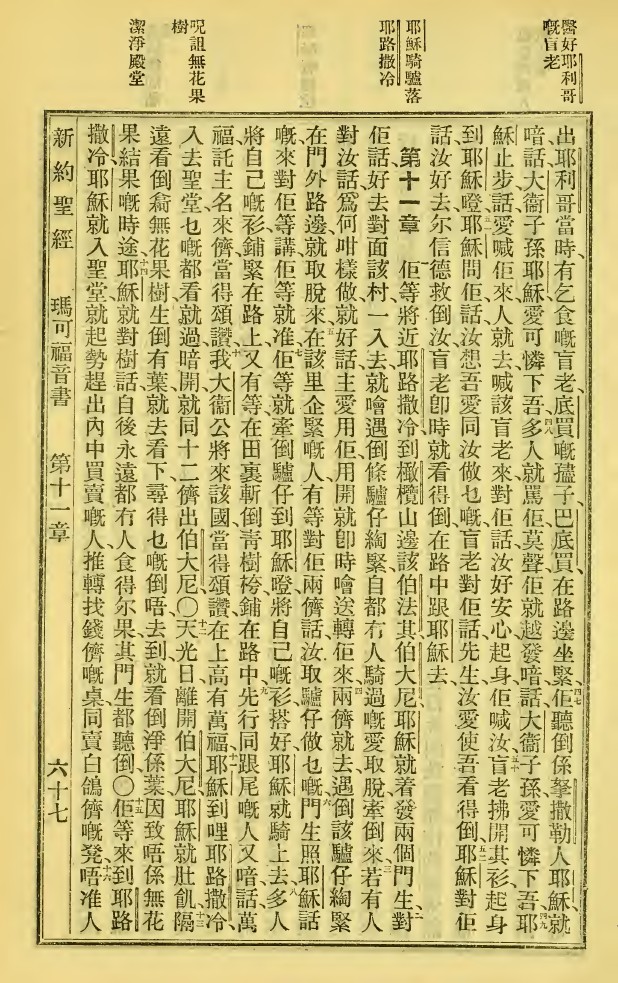 醫好耶利哥
嘅盲老
耶穌騎驢落
耶路撒冷
呪詛無花果
樹
潔淨殿堂
出耶利哥當時、有乞食嘅盲老、底買嘅孻子、巴底買、在路邊坐緊、四七佢聽倒係拏撒勒人耶穌、就
喑話、大衞子孫耶穌、愛可憐下吾、四八多人就罵佢莫聲、佢就越發喑話、大衞子孫、愛可憐下吾、四九耶
穌止步、話愛喊佢來、人就去喊該盲老來、對佢話、汝好安心起身、佢喊汝、五十盲老拂開其衫、起身
到耶穌嶝、五一耶穌問佢話、汝想吾愛同汝做乜嘅、盲老對佢話、先生、汝愛使吾看得倒、五二耶穌對佢
話、汝好去、尔信德救倒汝、盲老卽時就看得倒、在路中跟耶穌去、
第十一章 一佢等將近耶路撒冷、到橄欖山邊、該伯法其、伯大尼、耶穌就着發兩個門生、二對
佢話、好去對面該村、一入去就噲遇倒條驢仔綯緊、自都冇人騎過嘅、愛取脫牽倒來、三若有人
對汝話、爲何咁樣做、就好話、主愛用佢、用開就卽時噲送轉佢來、四兩儕就去、遇倒該驢仔綯緊
在門外路邊、就取脫來、五在該里企緊嘅人、有等對佢兩儕話、汝取驢仔做乜嘅、六門生照耶穌話
嘅來對佢等講、佢等就准佢、七佢等就牽倒驢仔到耶穌嶝、將自己嘅衫搭好、耶穌就騎上去、八多人
將自己嘅衫鋪緊在路上、又有等在田裏斬倒靑樹桍鋪在路中、九先行同跟尾嘅人、又喑話、萬
福、託主名來儕當得頌讚、十我大衞公將來該國、當得頌讚、在上高有萬福、十一耶穌到哩耶路撒冷、
入去聖堂、乜嘅都看就過、暗開就同十二儕出伯大尼、〇十二天光日離開伯大尼、耶穌就肚飢、十三隔
遠看倒喬無花果樹、生倒有葉、就去看下尋得乜嘅倒唔、去到就看倒淨係葉、因致唔係無花
果結果嘅時途、十四耶穌就對樹話、自後永遠都冇人食得尔果、其門生都聽倒、〇十五佢等來到耶路
撒冷、耶穌就入聖堂、就起勢趕出內中買賣嘅人、推轉找錢儕嘅桌、同賣白鴿儕嘅凳、十六唔准人
新約聖經 瑪可福音書 第十一章 六十七